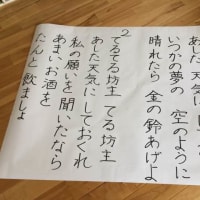 いつかの夢の 空のように
晴れたら 金の鈴あげよ
2
てるてる坊主 てる坊主
あした天気にしておくれ
私の願いを聞いたなら
あまいお酒を
たんと 飲ましょ